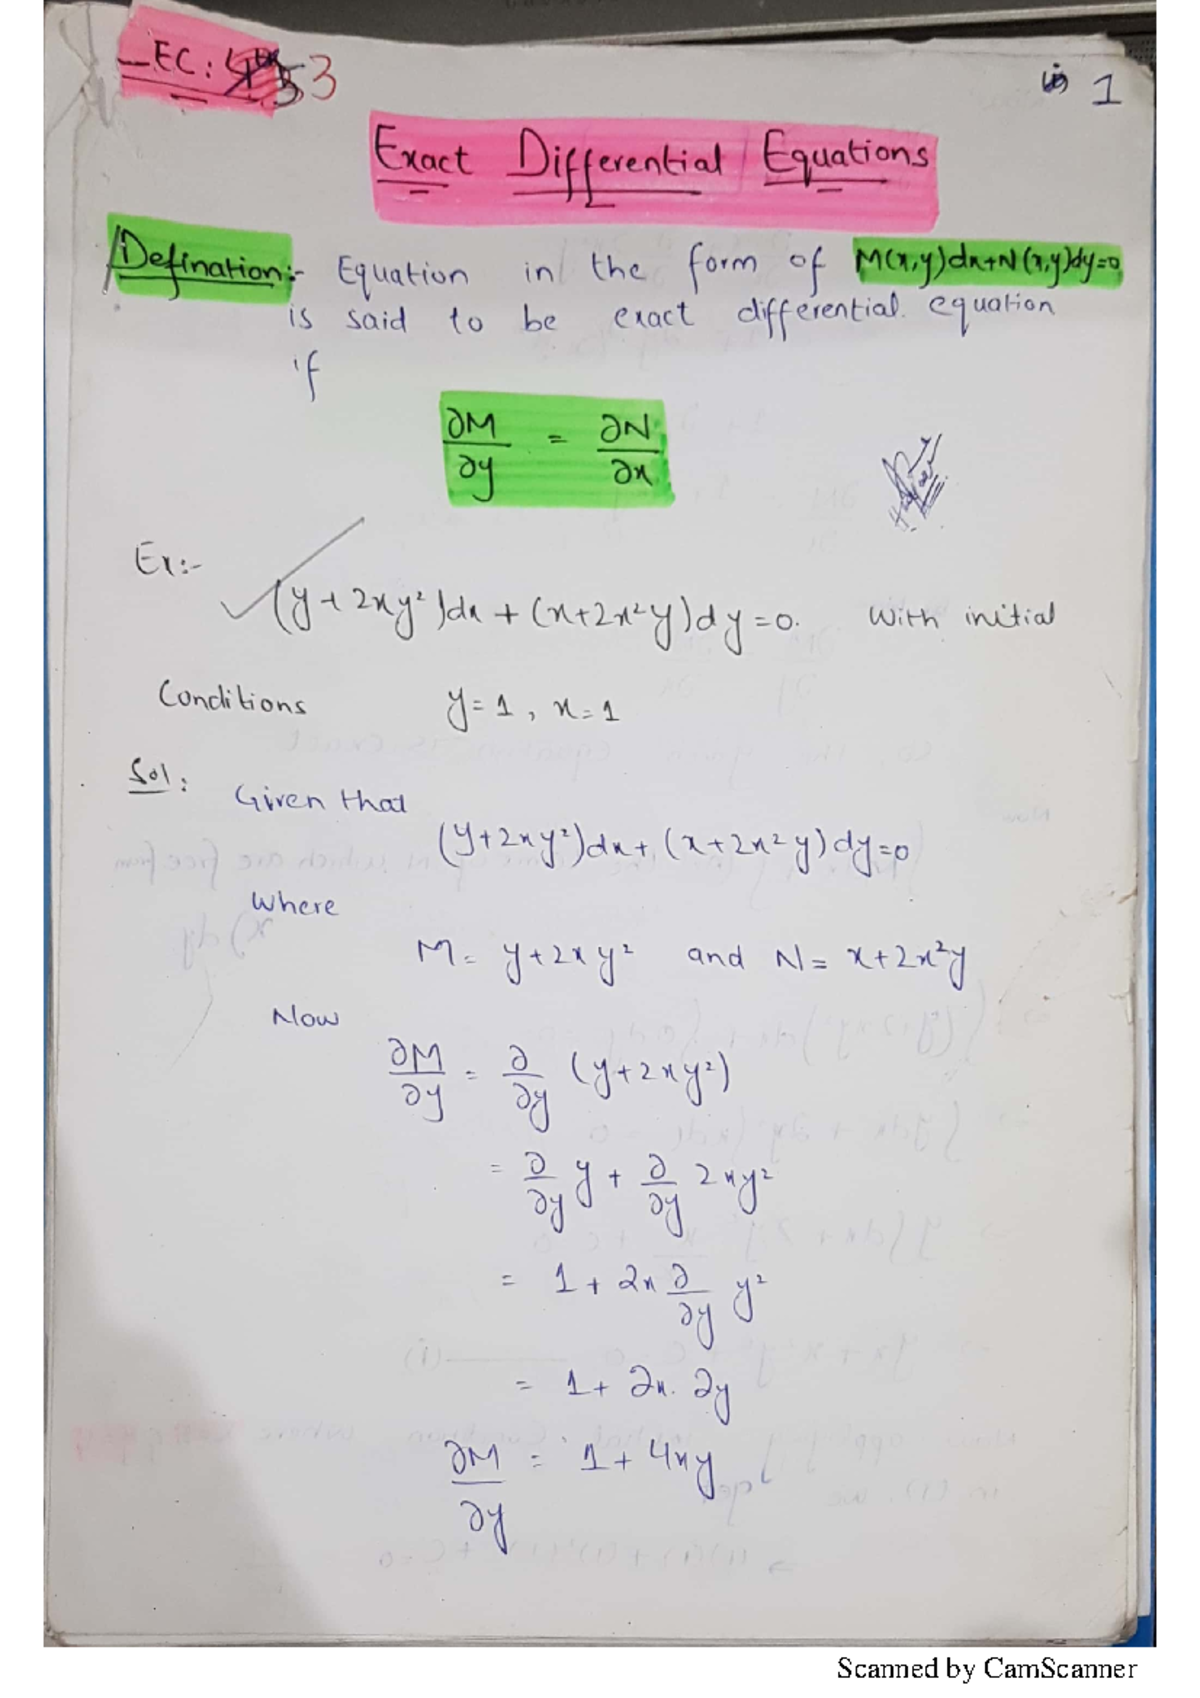 LEC: 3
1
Exact Differential Equations
Defination:- Equation in the form of M(x,y)dx+N(x,y)dy=0
is said to be exact differential equation
if
∂M/∂y = ∂N/∂x
Ex:-
(y+2xy²)dx + (x+2x²y)dy=0. With initial
Conditions y=1, x=1
Sol:
Given that
(y+2xy²)dx+(x+2x²y)dy=0
Where
M= y+2xy² and N= x+2x²y
Now
∂M/∂y = ∂/∂y (y+2xy²)
= ∂/∂y y + ∂/∂y 2xy²
= 1+2x ∂/∂y y²
= 1+2x.2y
∂M/∂y = 1+4xy
Scanned by CamScanner